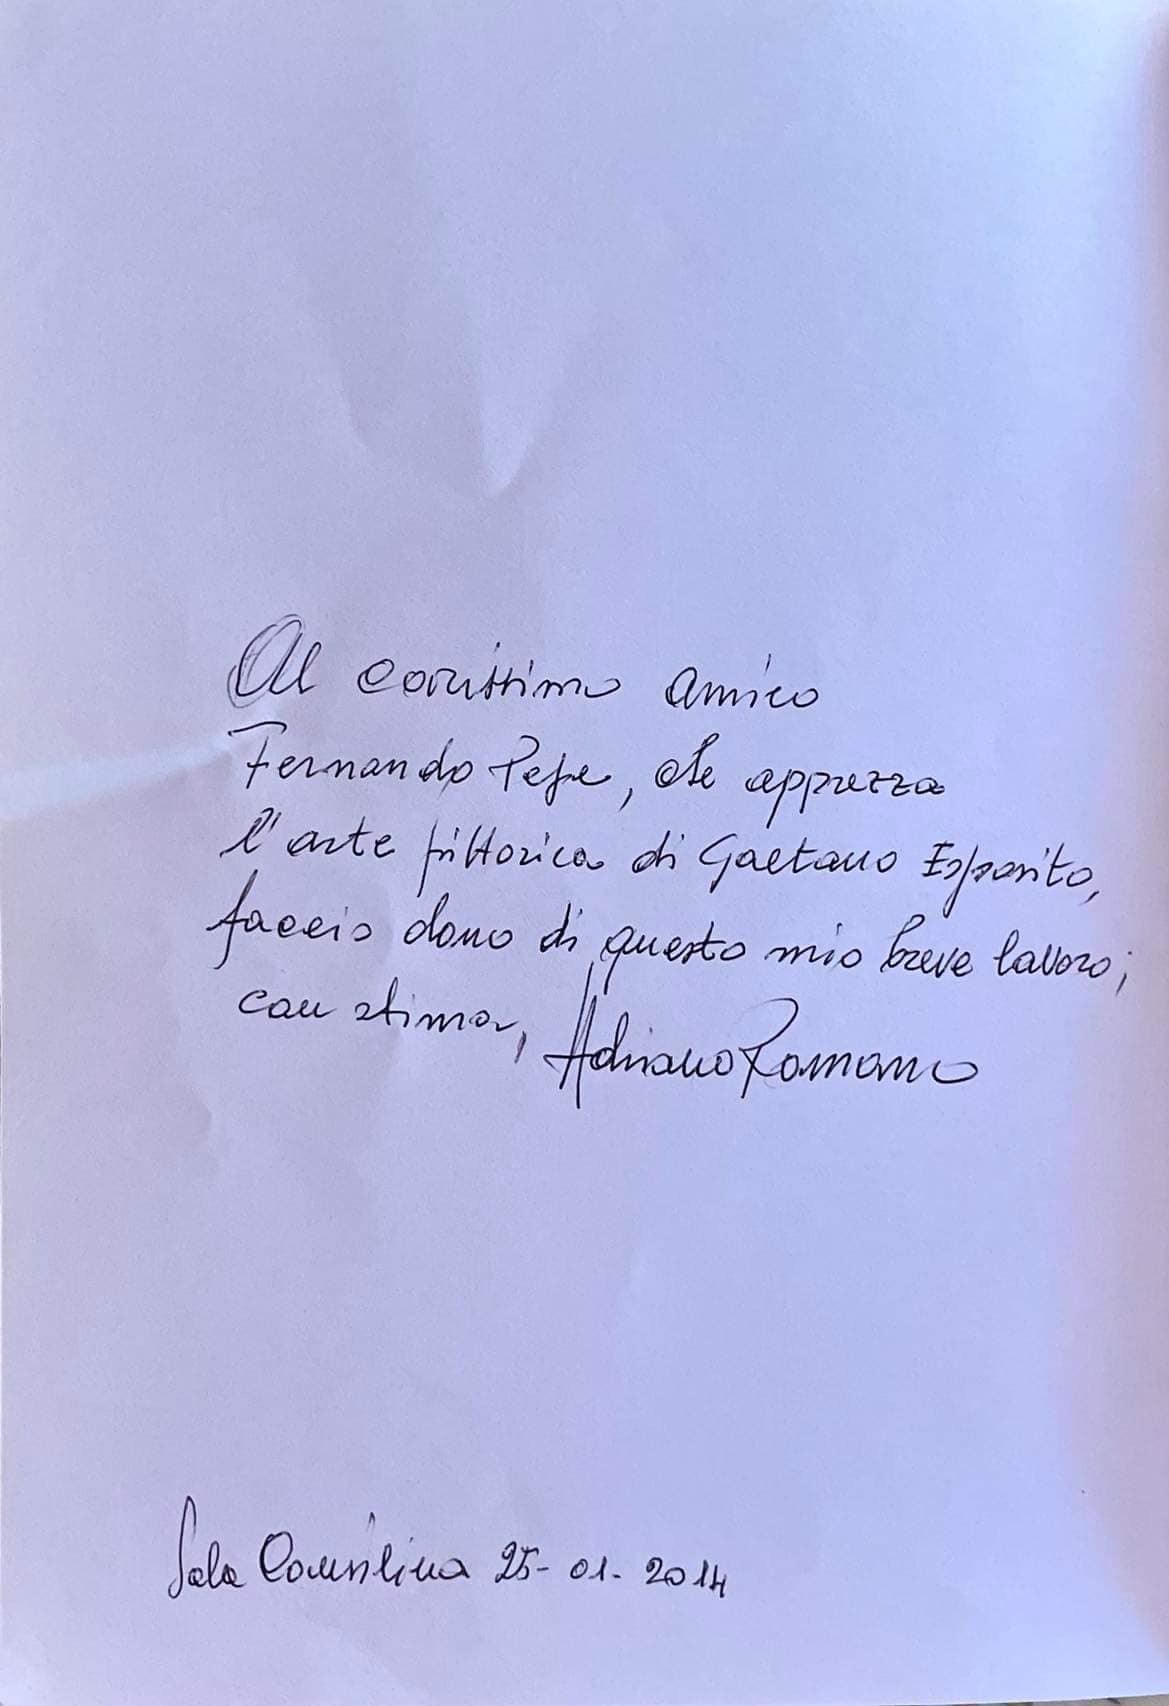 Al carissimo amico
Fernando Pepe, che apprezza
l'arte pittorica di Gaetano Esposito,
faccio dono di questo mio breve lavoro;
con stima, Adriano Romano
Sala Consilina 25-01-2014